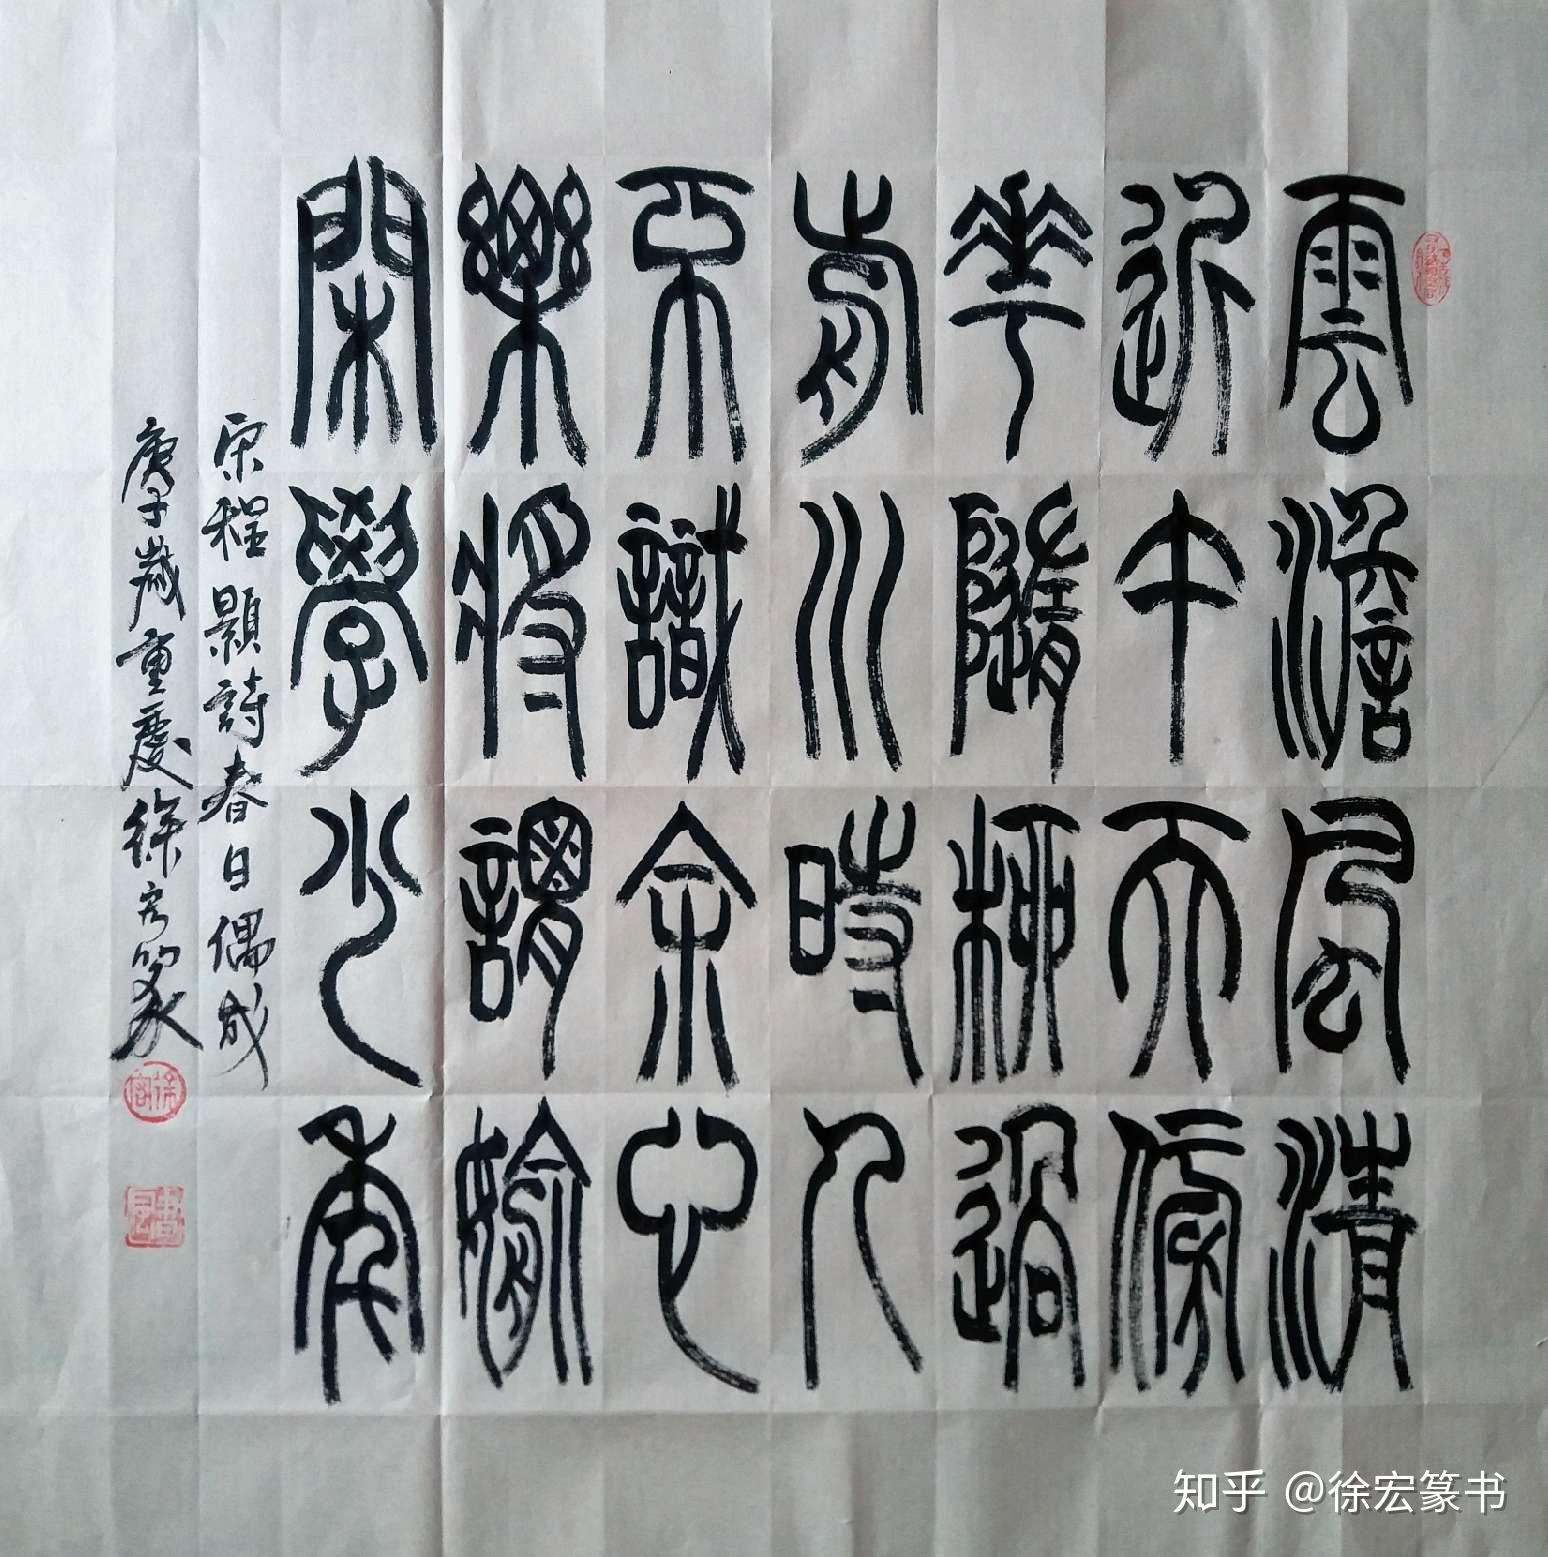 雲澹風清
近午天傍
華隨柳過
前川時人
不識余心
樂將謂媮
閑學少年
宋程顥詩春日偶成
庚子歲重慶徐宏篆
知乎 @徐宏篆书